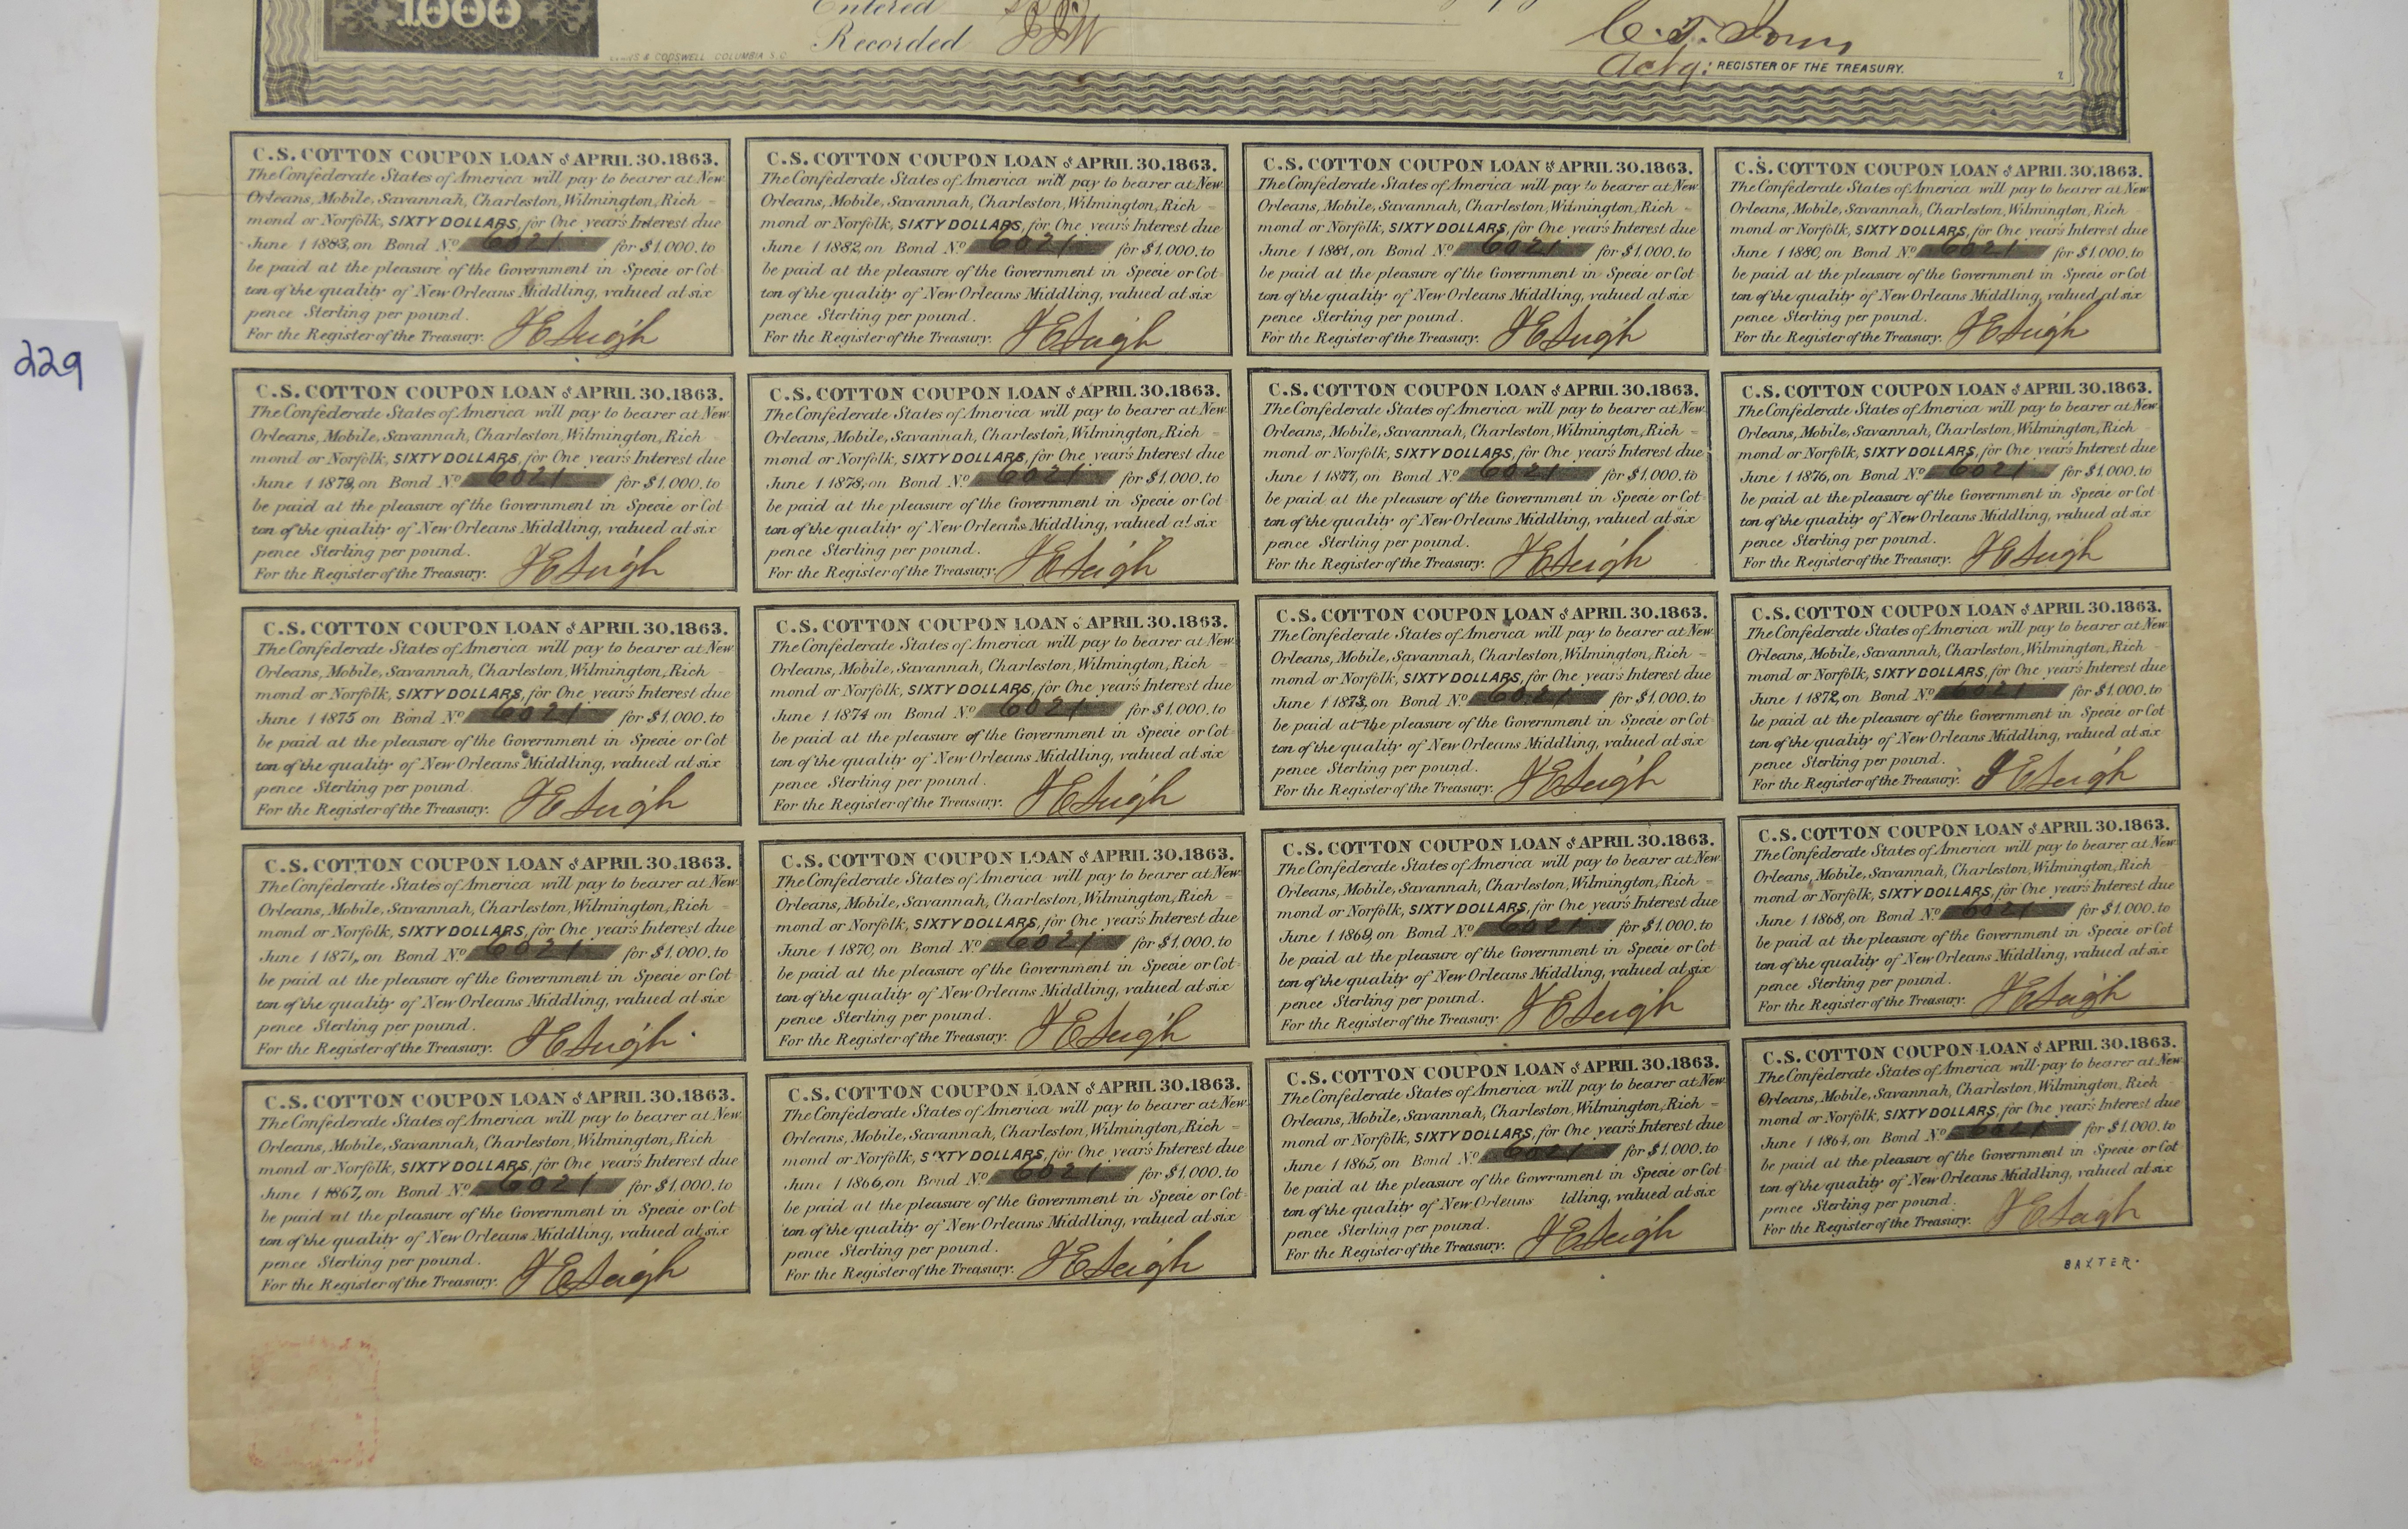 1000
Entered
Recorded
& COGSWELL COLUMBIA S.C.
Actg: REGISTER OF THE TREASURY.
229
C.S. COTTON COUPON LOAN of APRIL 30.1863.
The Confederate States of America will pay to bearer at New
Orleans, Mobile, Savannah, Charleston, Wilmington, Rich
mond or Norfolk, SIXTY DOLLARS, for One year's Interest due
June 1 1883, on Bond No 6021 for $1,000. to
be paid at the pleasure of the Government in Specie or Cot
ton of the quality of New Orleans Middling, valued at six
pence Sterling per pound.
For the Register of the Treasury.
C.S. COTTON COUPON LOAN of APRIL 30.1863.
The Confederate States of America will pay to bearer at New
Orleans, Mobile, Savannah, Charleston, Wilmington, Rich
mond or Norfolk, SIXTY DOLLARS, for One year's Interest due
June 1 1882, on Bond No 6021 for $1,000. to
be paid at the pleasure of the Government in Specie or Cot
ton of the quality of New Orleans Middling, valued at six
pence Sterling per pound.
For the Register of the Treasury.
C.S. COTTON COUPON LOAN of APRIL 30.1863.
The Confederate States of America will pay to bearer at New
Orleans, Mobile, Savannah, Charleston, Wilmington, Rich
mond or Norfolk, SIXTY DOLLARS, for One year's Interest due
June 1 1881, on Bond No 6021 for $1,000. to
be paid at the pleasure of the Government in Specie or Cot
ton of the quality of New Orleans Middling, valued at six
pence Sterling per pound.
For the Register of the Treasury.
C.S. COTTON COUPON LOAN of APRIL 30.1863.
The Confederate States of America will pay to bearer at New
Orleans, Mobile, Savannah, Charleston, Wilmington, Rich
mond or Norfolk, SIXTY DOLLARS, for One year's Interest due
June 1 1880, on Bond No 6021 for $1,000. to
be paid at the pleasure of the Government in Specie or Cot
ton of the quality of New Orleans Middling, valued at six
pence Sterling per pound.
For the Register of the Treasury.
C.S. COTTON COUPON LOAN of APRIL 30.1863.
The Confederate States of America will pay to bearer at New
Orleans, Mobile, Savannah, Charleston, Wilmington, Rich
mond or Norfolk, SIXTY DOLLARS, for One year's Interest due
June 1 1879, on Bond No 6021 for $1,000. to
be paid at the pleasure of the Government in Specie or Cot
ton of the quality of New Orleans Middling, valued at six
pence Sterling per pound.
For the Register of the Treasury.
C.S. COTTON COUPON LOAN of APRIL 30.1863.
The Confederate States of America will pay to bearer at New
Orleans, Mobile, Savannah, Charleston, Wilmington, Rich
mond or Norfolk, SIXTY DOLLARS, for One year's Interest due
June 1 1878, on Bond No 6021 for $1,000. to
be paid at the pleasure of the Government in Specie or Cot
ton of the quality of New Orleans Middling, valued at six
pence Sterling per pound.
For the Register of the Treasury.
C.S. COTTON COUPON LOAN of APRIL 30.1863.
The Confederate States of America will pay to bearer at New
Orleans, Mobile, Savannah, Charleston, Wilmington, Rich
mond or Norfolk, SIXTY DOLLARS, for One year's Interest due
June 1 1877, on Bond No 6021 for $1,000. to
be paid at the pleasure of the Government in Specie or Cot
ton of the quality of New Orleans Middling, valued at six
pence Sterling per pound.
For the Register of the Treasury.
C.S. COTTON COUPON LOAN of APRIL 30.1863.
The Confederate States of America will pay to bearer at New
Orleans, Mobile, Savannah, Charleston, Wilmington, Rich
mond or Norfolk, SIXTY DOLLARS, for One year's Interest due
June 1 1876, on Bond No 6021 for $1,000. to
be paid at the pleasure of the Government in Specie or Cot
ton of the quality of New Orleans Middling, valued at six
pence Sterling per pound.
For the Register of the Treasury.
C.S. COTTON COUPON LOAN of APRIL 30.1863.
The Confederate States of America will pay to bearer at New
Orleans, Mobile, Savannah, Charleston, Wilmington, Rich
mond or Norfolk, SIXTY DOLLARS, for One year's Interest due
June 1 1875 on Bond No 6021 for $1,000. to
be paid at the pleasure of the Government in Specie or Cot
ton of the quality of New Orleans Middling, valued at six
pence Sterling per pound.
For the Register of the Treasury.
C.S. COTTON COUPON LOAN of APRIL 30.1863.
The Confederate States of America will pay to bearer at New
Orleans, Mobile, Savannah, Charleston, Wilmington, Rich
mond or Norfolk, SIXTY DOLLARS, for One year's Interest due
June 1 1874 on Bond No 6021 for $1,000. to
be paid at the pleasure of the Government in Specie or Cot
ton of the quality of New Orleans Middling, valued at six
pence Sterling per pound.
For the Register of the Treasury.
C.S. COTTON COUPON LOAN of APRIL 30.1863.
The Confederate States of America will pay to bearer at New
Orleans, Mobile, Savannah, Charleston, Wilmington, Rich
mond or Norfolk, SIXTY DOLLARS, for One year's Interest due
June 1 1873, on Bond No 6021 for $1,000. to
be paid at the pleasure of the Government in Specie or Cot
ton of the quality of New Orleans Middling, valued at six
pence Sterling per pound.
For the Register of the Treasury.
C.S. COTTON COUPON LOAN of APRIL 30.1863.
The Confederate States of America will pay to bearer at New
Orleans, Mobile, Savannah, Charleston, Wilmington, Rich
mond or Norfolk, SIXTY DOLLARS, for One year's Interest due
June 1 1872, on Bond No 6021 for $1,000. to
be paid at the pleasure of the Government in Specie or Cot
ton of the quality of New Orleans Middling, valued at six
pence Sterling per pound.
For the Register of the Treasury.
C.S. COTTON COUPON LOAN of APRIL 30.1863.
The Confederate States of America will pay to bearer at New
Orleans, Mobile, Savannah, Charleston, Wilmington, Rich
mond or Norfolk, SIXTY DOLLARS, for One year's Interest due
June 1 1871, on Bond No 6021 for $1,000. to
be paid at the pleasure of the Government in Specie or Cot
ton of the quality of New Orleans Middling, valued at six
pence Sterling per pound.
For the Register of the Treasury.
C.S. COTTON COUPON LOAN of APRIL 30.1863.
The Confederate States of America will pay to bearer at New
Orleans, Mobile, Savannah, Charleston, Wilmington, Rich
mond or Norfolk, SIXTY DOLLARS, for One year's Interest due
June 1 1870, on Bond No 6021 for $1,000. to
be paid at the pleasure of the Government in Specie or Cot
ton of the quality of New Orleans Middling, valued at six
pence Sterling per pound.
For the Register of the Treasury.
C.S. COTTON COUPON LOAN of APRIL 30.1863.
The Confederate States of America will pay to bearer at New
Orleans, Mobile, Savannah, Charleston, Wilmington, Rich
mond or Norfolk, SIXTY DOLLARS, for One year's Interest due
June 1 1869, on Bond No 6021 for $1,000. to
be paid at the pleasure of the Government in Specie or Cot
ton of the quality of New Orleans Middling, valued at six
pence Sterling per pound.
For the Register of the Treasury.
C.S. COTTON COUPON LOAN of APRIL 30.1863.
The Confederate States of America will pay to bearer at New
Orleans, Mobile, Savannah, Charleston, Wilmington, Rich
mond or Norfolk, SIXTY DOLLARS, for One year's Interest due
June 1 1868, on Bond No 6021 for $1,000. to
be paid at the pleasure of the Government in Specie or Cot
ton of the quality of New Orleans Middling, valued at six
pence Sterling per pound.
For the Register of the Treasury.
C.S. COTTON COUPON LOAN of APRIL 30.1863.
The Confederate States of America will pay to bearer at New
Orleans, Mobile, Savannah, Charleston, Wilmington, Rich
mond or Norfolk, SIXTY DOLLARS, for One year's Interest due
June 1 1867, on Bond No 6021 for $1,000. to
be paid at the pleasure of the Government in Specie or Cot
ton of the quality of New Orleans Middling, valued at six
pence Sterling per pound.
For the Register of the Treasury.
C.S. COTTON COUPON LOAN of APRIL 30.1863.
The Confederate States of America will pay to bearer at New
Orleans, Mobile, Savannah, Charleston, Wilmington, Rich
mond or Norfolk, SIXTY DOLLARS, for One year's Interest due
June 1 1866, on Bond No 6021 for $1,000. to
be paid at the pleasure of the Government in Specie or Cot
ton of the quality of New Orleans Middling, valued at six
pence Sterling per pound.
For the Register of the Treasury.
C.S. COTTON COUPON LOAN of APRIL 30.1863.
The Confederate States of America will pay to bearer at New
Orleans, Mobile, Savannah, Charleston, Wilmington, Rich
mond or Norfolk, SIXTY DOLLARS, for One year's Interest due
June 1 1865, on Bond No 6021 for $1,000. to
be paid at the pleasure of the Government in Specie or Cot
ton of the quality of New Orleans ldling, valued at six
pence Sterling per pound.
For the Register of the Treasury.
C.S. COTTON COUPON LOAN of APRIL 30.1863.
The Confederate States of America will pay to bearer at New
Orleans, Mobile, Savannah, Charleston, Wilmington, Rich
mond or Norfolk, SIXTY DOLLARS, for One year's Interest due
June 1 1864, on Bond No 6021 for $1,000. to
be paid at the pleasure of the Government in Specie or Cot
ton of the quality of New Orleans Middling, valued at six
pence Sterling per pound.
For the Register of the Treasury.
BAXTER.